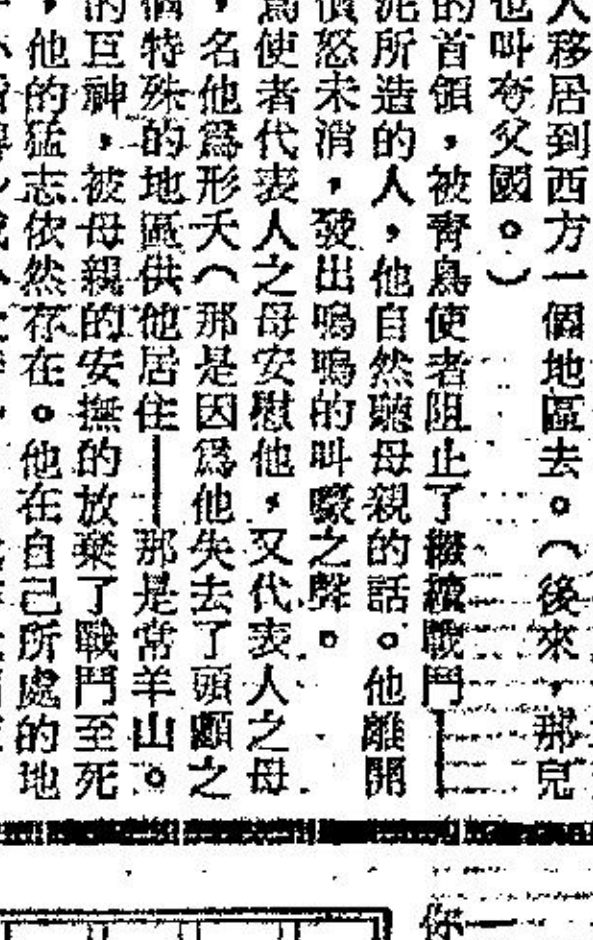 人移居到西方一個地區去。（後來，那兒
也叫夸父國。）
的首領，被靑鳥使者阻止了繼續戰鬥——
泥所造的人，他自然聽母親的話。他離開
憤怒未消，發出嗚嗚的叫嚎之聲。
爲使者代表人之母安慰他，又代表人之母
，名他爲形夭（那是因爲他失去了頭顱之
個特殊的地區供他居住——那是常羊山。
的巨神，被母親的安撫的放棄了戰鬥至死
，他的猛志依然存在。他在自己所處的地
你